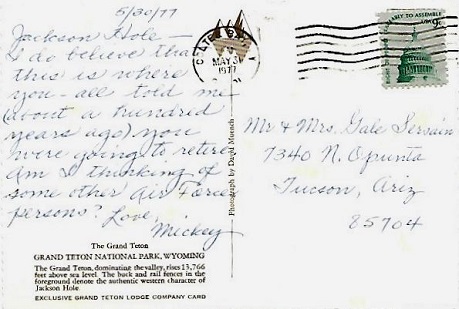 5/30/77
Jackson Hole —
I do believe that
this is where
you-all told me
(about a hundred
years ago) you
were going to retire.
Am I thinking of
some other Air Force
persons? Love,
Mickey
The Grand Teton
GRAND TETON NATIONAL PARK, WYOMING
The Grand Teton, dominating the valley, rises 13,766
feet above sea level. The buck and rail fences in the
foreground denote the authentic western character of
Jackson Hole
EXCLUSIVE GRAND TETON LODGE COMPANY CARD
Photograph by David Muench
MAY 31
1977
TO ASSEMBLE
9c
Mr & Mrs. Gale Servain
7340 N. Opunta
Tucson, Ariz
85704